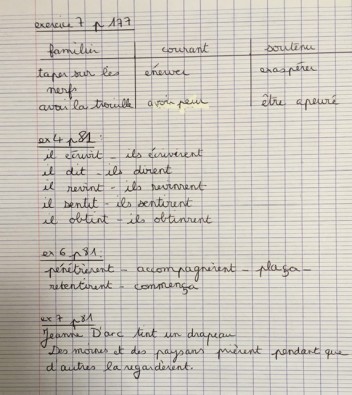 exercice 7 p 177
familier courant soutenu
taper sur les énerver exaspérer
nerfs
avoir la trouille avoir peur être apeuré
ex 4 p 81 :
il écrivit - ils écrivèrent
il dit - ils dirent
il revint - ils revinrent
il sentit - ils sentirent
il obtint - ils obtinrent
ex 6 p 81 :
pénétrèrent - accompagnèrent - plaça -
retentirent - commença
ex 7 p 81
Jeanne D'arc tint un drapeau
Des moines et des paysans prièrent pendant que
d'autres la regardèrent.